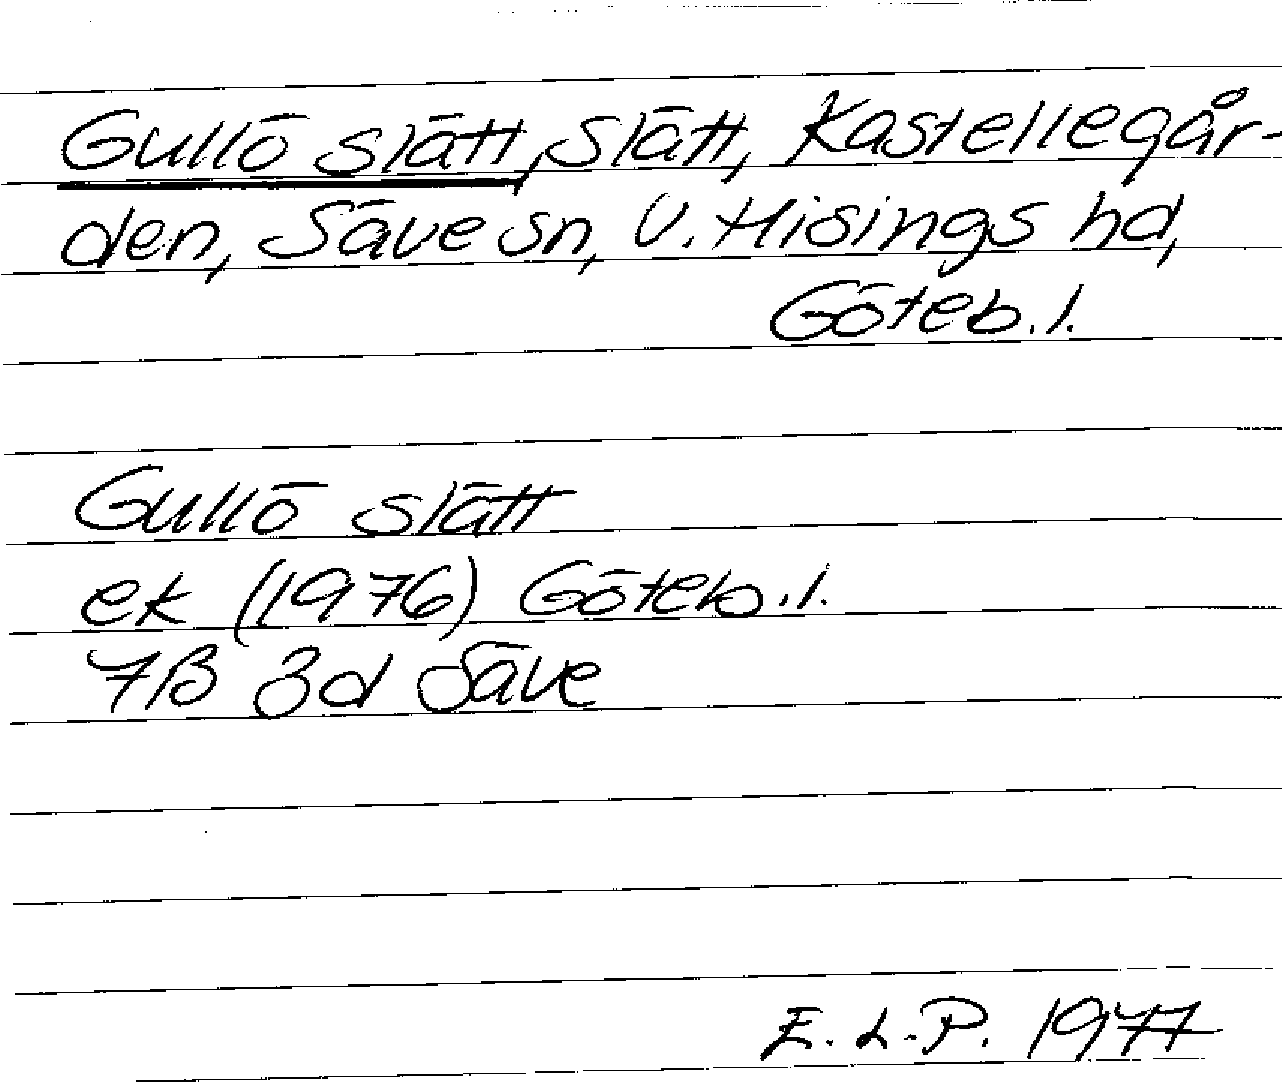 Gullö slätt, Slätt, Kastellegår-
den, Säve sn, V. Hisings hd,
Göteb. l.
Gullö slätt
ek (1976) Göteb. l.
7B 3d Säve
E. L. P. 1977